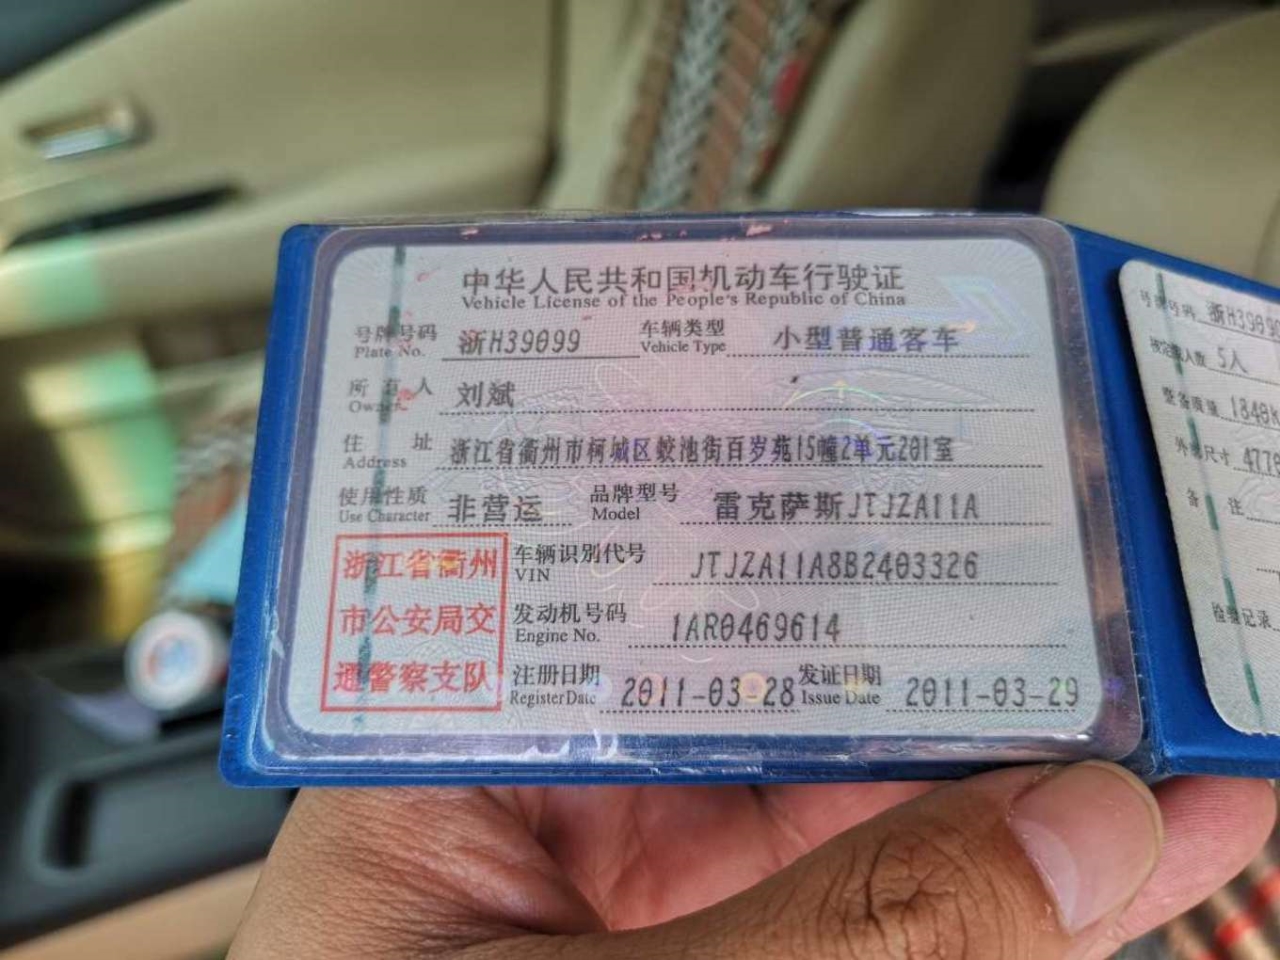 中华人民共和国机动车行驶证
Vehicle License of the People's Republic of China
号牌号码 浙H39099 车辆类型 小型普通客车
Plate No. Vehicle Type
所有人 刘斌
Owner
住址 浙江省衢州市柯城区蛟池街百岁苑15幢2单元201室
Address
使用性质 非营运 品牌型号 雷克萨斯JTJZA11A
Use Character Model
浙江省衢州
市公安局交
通警察支队
车辆识别代号 JTJZA11A8B2403326
VIN
发动机号码 1AR0469614
Engine No.
注册日期 2011-03-28 发证日期 2011-03-29
Register Date Issue Date
号牌号码 浙H3909
核定载人数 5人
整备质量 1848
外廓尺寸 477
备注
检验记录